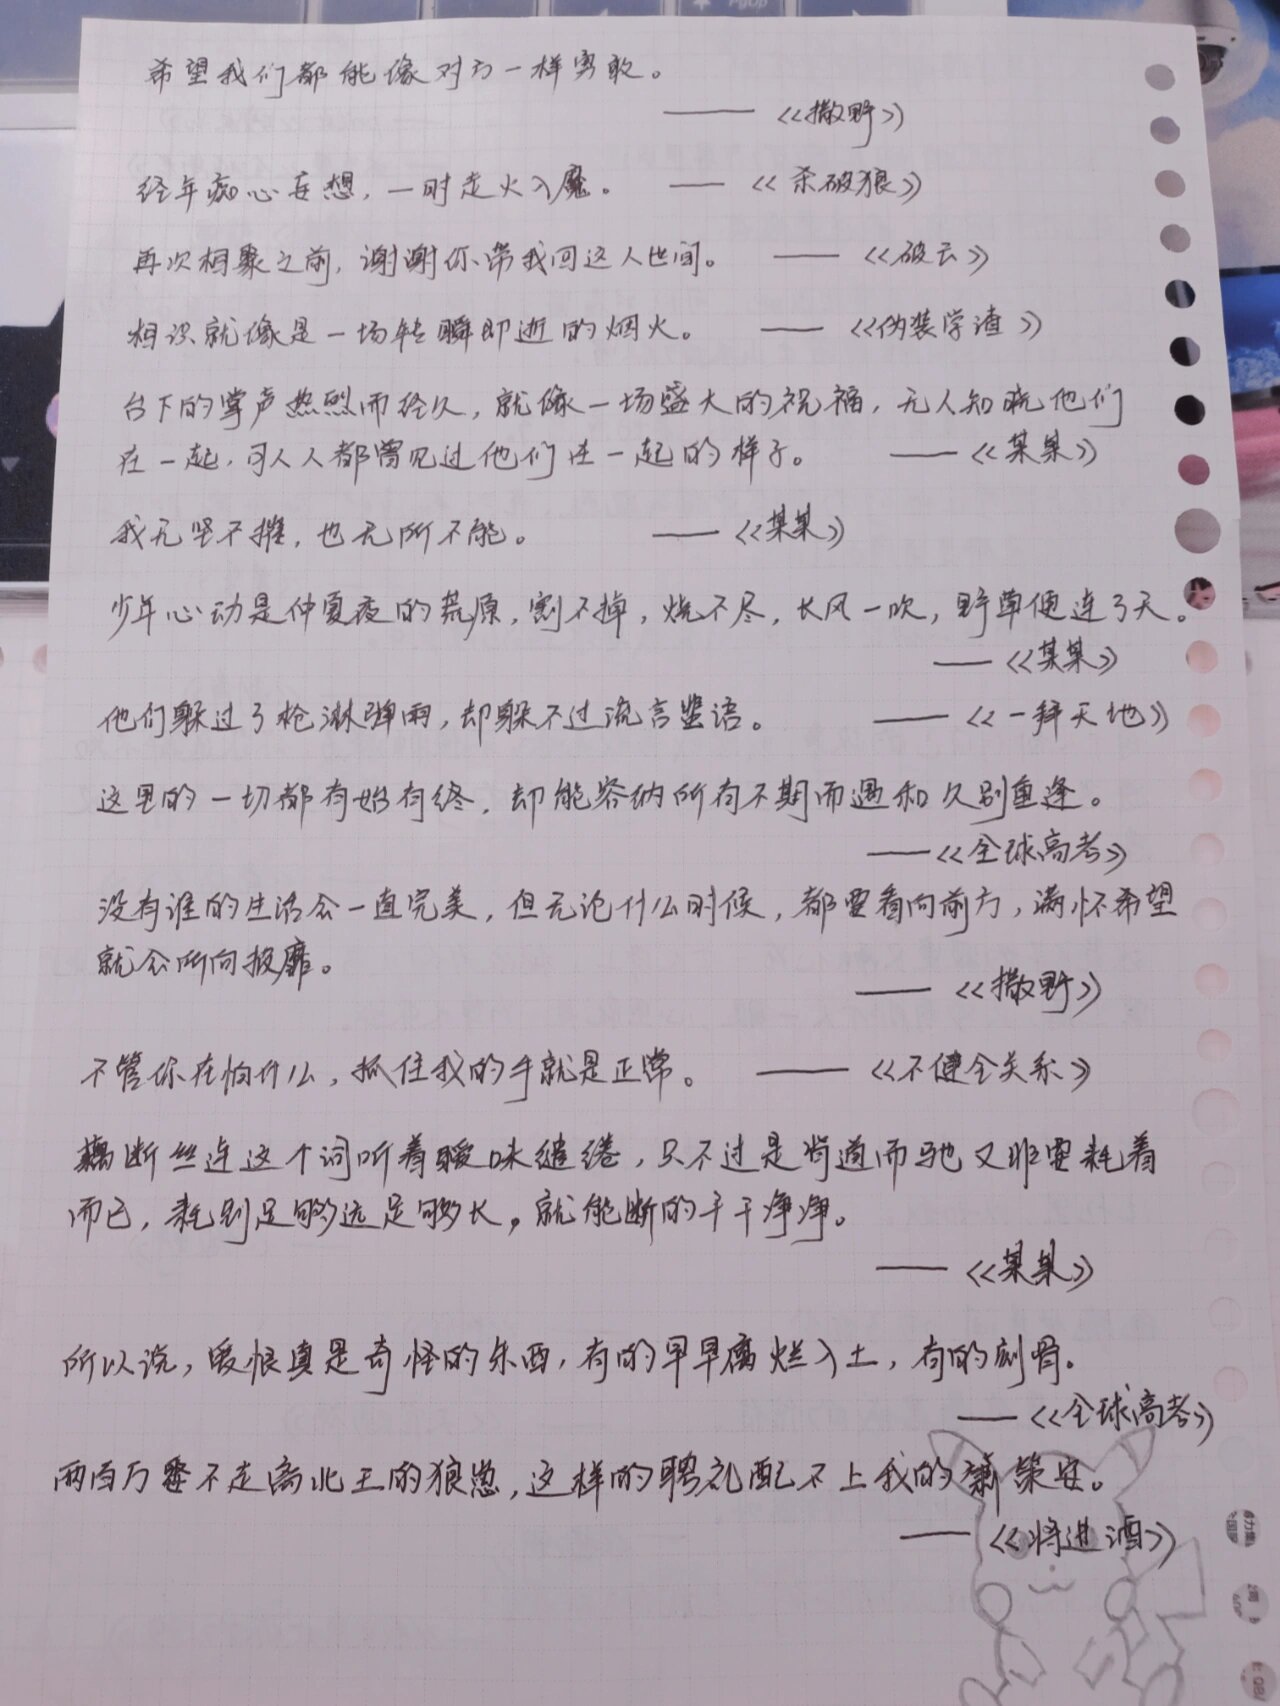 希望我们都能像对方一样勇敢。
——《撒野》
经年痴心妄想，一时走火入魔。 ——《杀破狼》
再次相聚之前，谢谢你带我回这人世间。 ——《破云》
相识就像是一场转瞬即逝的烟火。 ——《伪装学渣》
台下的掌声热烈而经久，就像一场盛大的祝福，无人知晓他们
在一起，可人人都曾见过他们在一起的样子。 ——《某某》
我无坚不摧，也无所不能。 ——《某某》
少年心动是仲夏夜的荒原，割不掉，烧不尽，长风一吹，野草便连了天。
——《某某》
他们躲过了枪淋弹雨，却躲不过流言蜚语。 ——《一拜天地》
这里的一切都有始有终，却能容纳所有不期而遇和久别重逢。
——《全球高考》
没有谁的生活会一直完美，但无论什么时候，都要看向前方，满怀希望
就会所向披靡。
——《撒野》
不管你在怕什么，抓住我的手就是正常。 ——《不健全关系》
藕断丝连这个词听着暧昧缱绻，只不过是背道而驰又非要耗着
而已，耗到足够远足够长，就能断的干干净净。
——《某某》
所以说，爱恨真是奇怪的东西，有的早早腐烂入土，有的刻骨。
——《全球高考》
两百万要不走离北王的狼崽，这样的聘礼配不上我的萧策安。
——《将进酒》